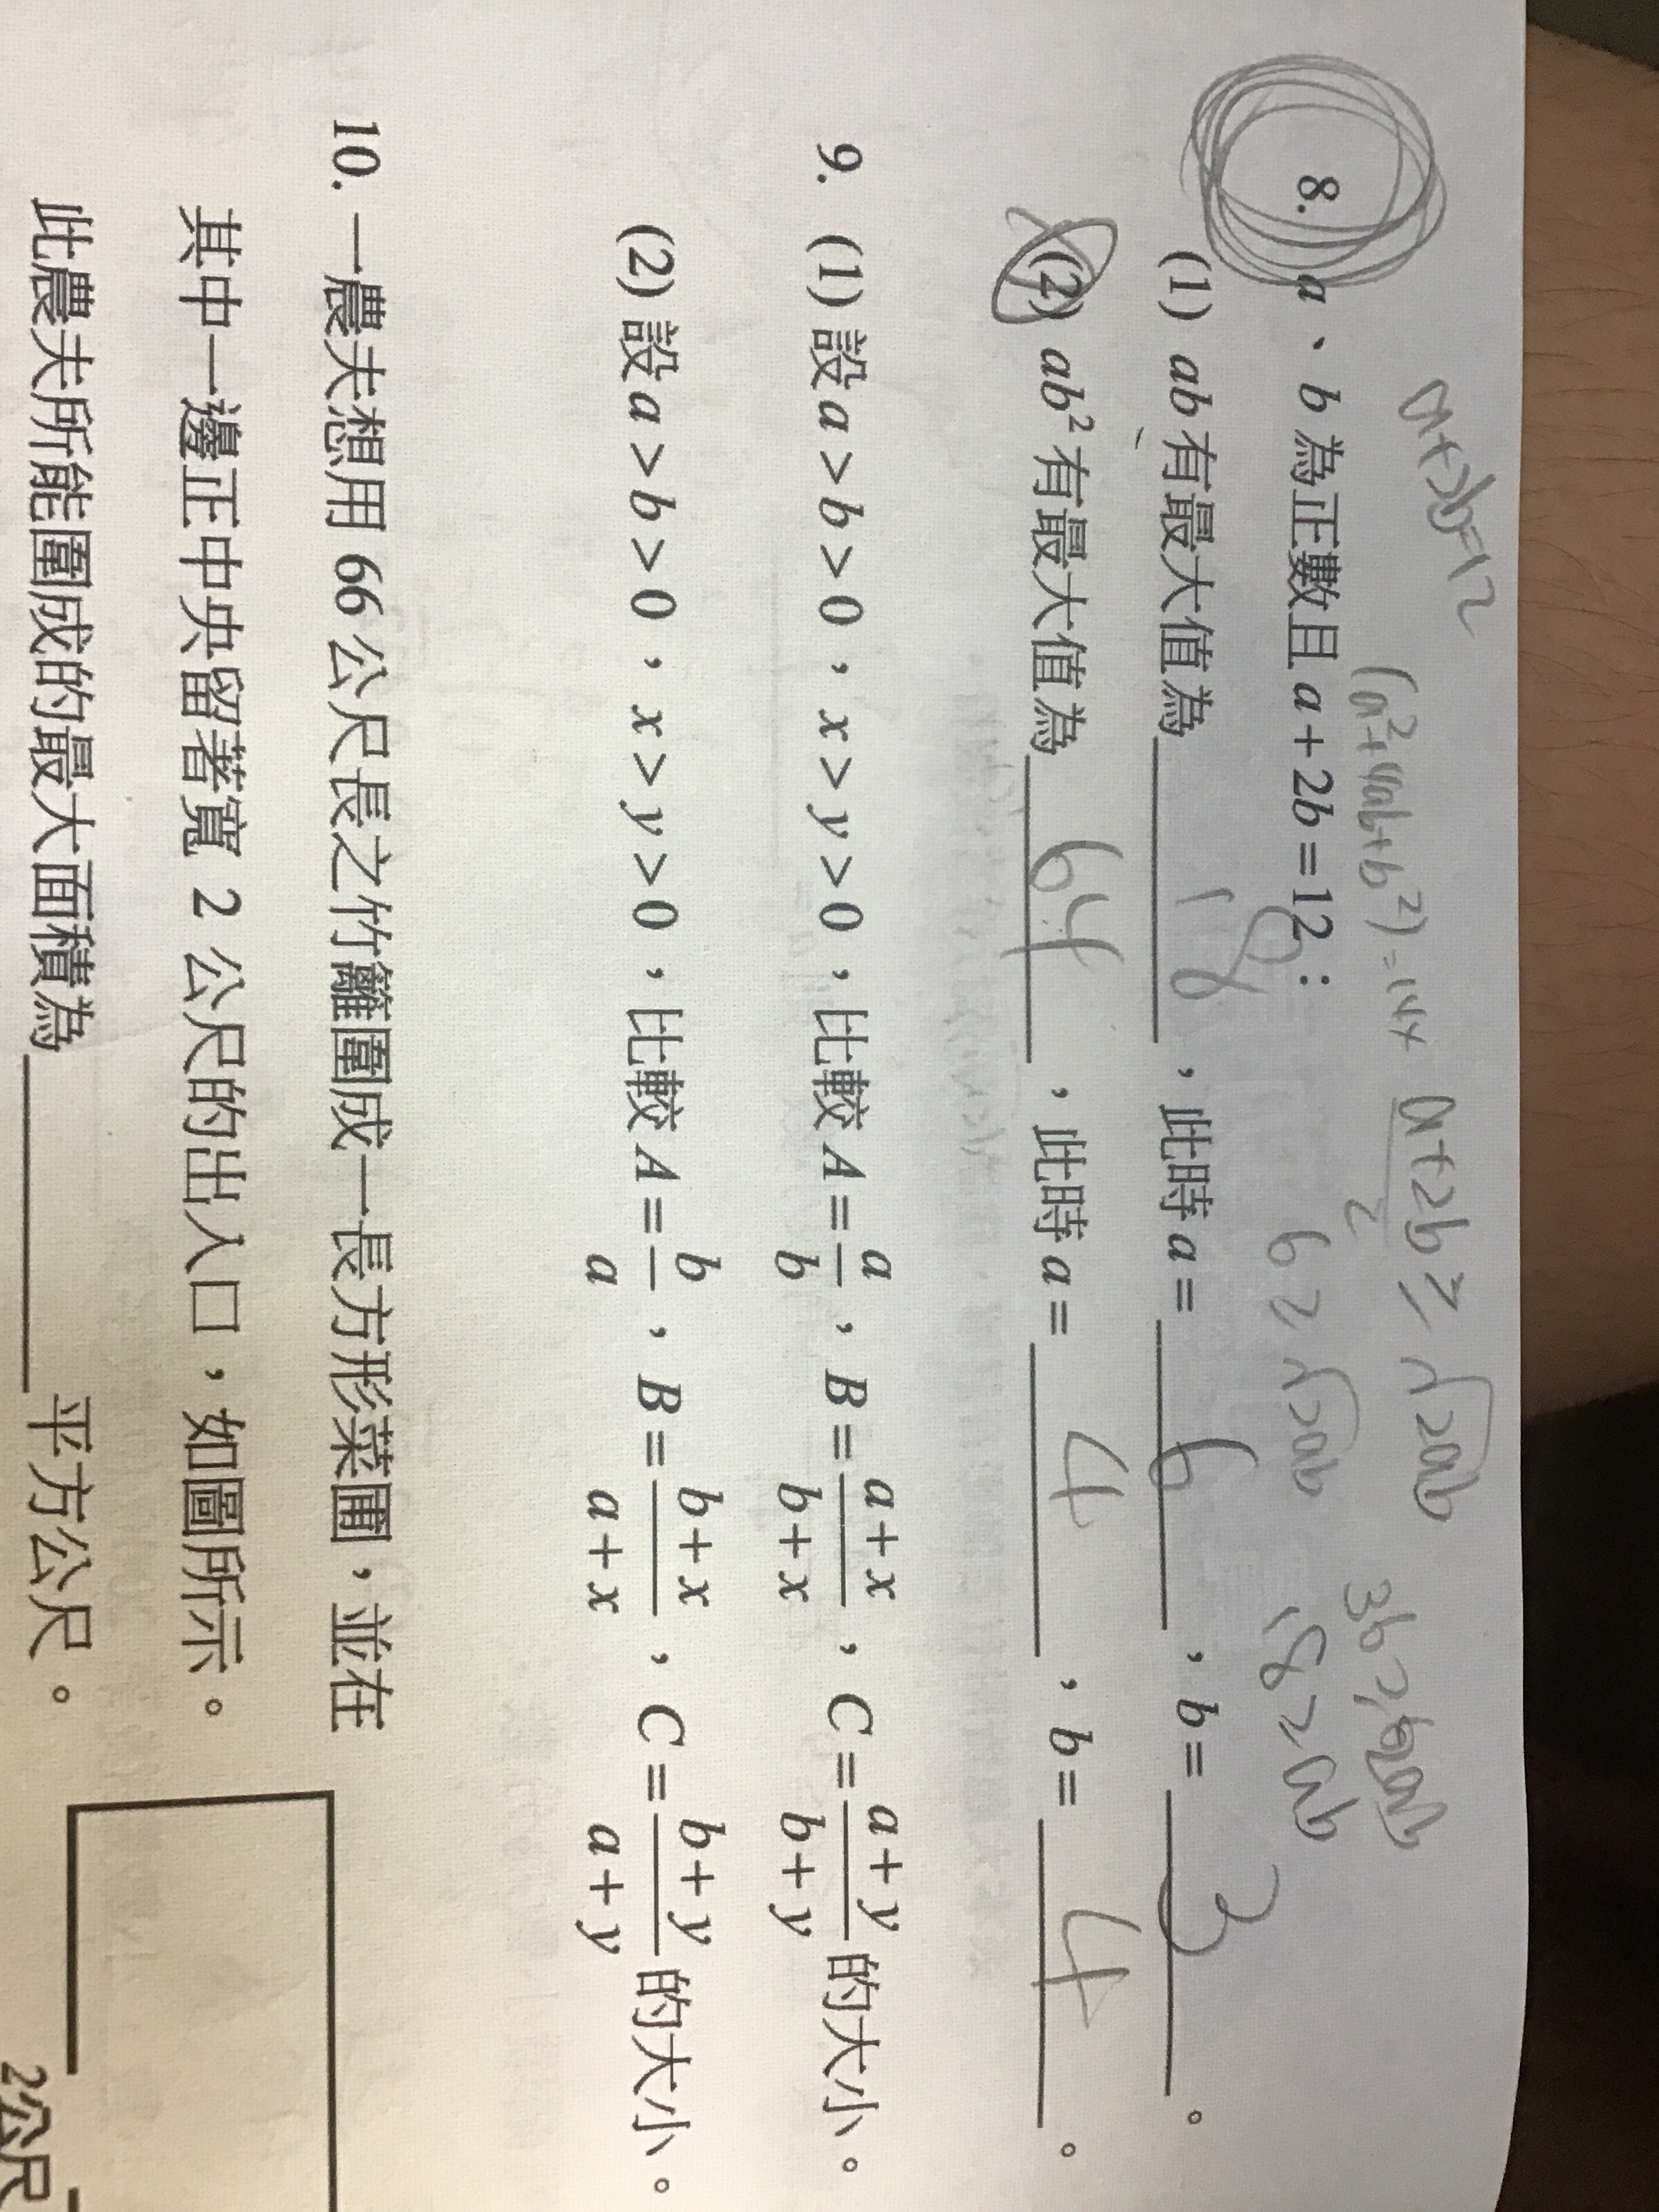 a+2b=12
(a²+4ab+b²)=144
a+2b/2 ≥ √2ab
36≥2ab
6≥√2ab
18≥ab
8. a、b為正數且 a+2b=12:
(1) ab有最大值為 18 ,此時 a= 6 ,b= 3 。
(2) ab²有最大值為 64 ,此時 a= 4 ,b= 4 。
9. (1) 設 a>b>0,x>y>0,比較 A=a/b,B=(a+x)/(b+x),C=(a+y)/(b+y)的大小。
(2) 設 a>b>0,x>y>0,比較 A=b/a,B=(b+x)/(a+x),C=(b+y)/(a+y)的大小。
10. 一農夫想用 66 公尺長之竹籬圍成一長方形菜圃,並在
其中一邊正中央留著寬 2 公尺的出入口,如圖所示。
此農夫所能圍成的最大面積為 平方公尺。
2公尺